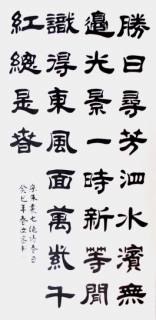 勝日尋芳泗水濱無
邊光景一時新等閒
識得東風面萬紫千
紅總是春
宋朱熹七絕詩春日
癸巳年春